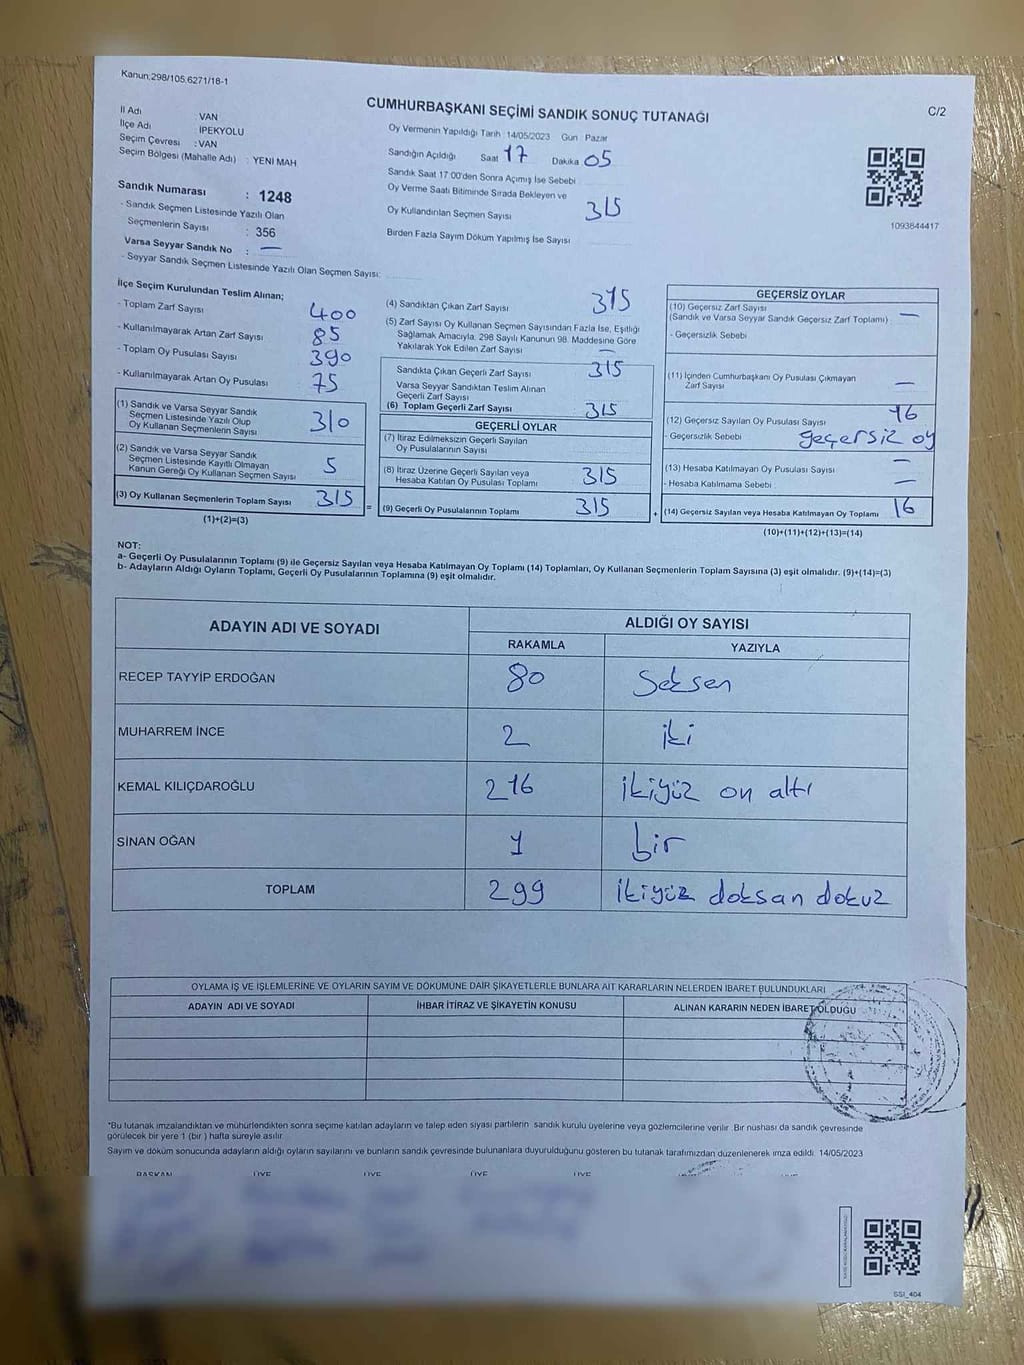 Kanun:298/105,6271/18-1
CUMHURBAŞKANI SEÇİMİ SANDIK SONUÇ TUTANAĞI
C/2
İl Adı VAN
İlçe Adı İPEKYOLU
Seçim Çevresi : VAN
Seçim Bölgesi (Mahalle Adı) : YENİ MAH
Sandık Numarası : 1248
- Sandık Seçmen Listesinde Yazılı Olan
Seçmenlerin Sayısı : 356
Varsa Seyyar Sandık No : —
- Seyyar Sandık Seçmen Listesinde Yazılı Olan Seçmen Sayısı:
Oy Vermenin Yapıldığı Tarih :14/05/2023 Gün : Pazar
Sandığın Açıldığı Saat 17 Dakika 05
Sandık Saat 17:00'den Sonra Açımış İse Sebebi
Oy Verme Saati Bitiminde Sırada Bekleyen ve
Oy Kullandırılan Seçmen Sayısı 315
Birden Fazla Sayım Döküm Yapılmış İse Sayısı
1093844417
İlçe Seçim Kurulundan Teslim Alınan;
- Toplam Zarf Sayısı 400
- Kullanılmayarak Artan Zarf Sayısı 85
- Toplam Oy Pusulası Sayısı 390
- Kullanılmayarak Artan Oy Pusulası 75
(1) Sandık ve Varsa Seyyar Sandık
Seçmen Listesinde Yazılı Olup
Oy Kullanan Seçmenlerin Sayısı 310
(2) Sandık ve Varsa Seyyar Sandık
Seçmen Listesinde Kayıtlı Olmayan
Kanun Gereği Oy Kullanan Seçmen Sayısı 5
(3) Oy Kullanan Seçmenlerin Toplam Sayısı 315
(1)+(2)=(3)
(4) Sandıktan Çıkan Zarf Sayısı 315
(5) Zarf Sayısı Oy Kullanan Seçmen Sayısından Fazla İse, Eşitliği
Sağlamak Amacıyla, 298 Sayılı Kanunun 98. Maddesine Göre
Yakılarak Yok Edilen Zarf Sayısı —
Sandıkta Çıkan Geçerli Zarf Sayısı 315
Varsa Seyyar Sandıktan Teslim Alınan
Geçerli Zarf Sayısı
(6) Toplam Geçerli Zarf Sayısı 315
GEÇERLİ OYLAR
(7) İtiraz Edilmeksizin Geçerli Sayılan
Oy Pusulalarının Sayısı
(8) İtiraz Üzerine Geçerli Sayılan veya
Hesaba Katılan Oy Pusulası Toplamı 315
= (9) Geçerli Oy Pusulalarının Toplamı 315 +
GEÇERSİZ OYLAR
(10) Geçersiz Zarf Sayısı
(Sandık ve Varsa Seyyar Sandık Geçersiz Zarf Toplamı) —
- Geçersizlik Sebebi
(11) İçinden Cumhurbaşkanı Oy Pusulası Çıkmayan
Zarf Sayısı —
(12) Geçersiz Sayılan Oy Pusulası Sayısı 16
- Geçersizlik Sebebi geçersiz oy
(13) Hesaba Katılmayan Oy Pusulası Sayısı —
- Hesaba Katılmama Sebebi —
(14) Geçersiz Sayılan veya Hesaba Katılmayan Oy Toplamı 16
(10)+(11)+(12)+(13)=(14)
NOT:
a- Geçerli Oy Pusulalarının Toplamı (9) ile Geçersiz Sayılan veya Hesaba Katılmayan Oy Toplamı (14) Toplamları, Oy Kullanan Seçmenlerin Toplam Sayısına (3) eşit olmalıdır. (9)+(14)=(3)
b- Adayların Aldığı Oyların Toplamı, Geçerli Oy Pusulalarının Toplamına (9) eşit olmalıdır.
ADAYIN ADI VE SOYADI ALDIĞI OY SAYISI
RAKAMLA YAZIYLA
RECEP TAYYİP ERDOĞAN 80 Seksen
MUHARREM İNCE 2 iki
KEMAL KILIÇDAROĞLU 216 ikiyüz on altı
SİNAN OĞAN 1 bir
TOPLAM 299 ikiyüz doksan dokuz
OYLAMA İŞ VE İŞLEMLERİNE VE OYLARIN SAYIM VE DÖKÜMÜNE DAİR ŞİKAYETLERLE BUNLARA AİT KARARLARIN NELERDEN İBARET BULUNDUKLARI
ADAYIN ADI VE SOYADI İHBAR İTİRAZ VE ŞİKAYETİN KONUSU ALINAN KARARIN NEDEN İBARET OLDUĞU
*Bu tutanak imzalandıktan ve mühürlendikten sonra seçime katılan adayların ve talep eden siyasi partilerin sandık kurulu üyelerine veya gözlemcilerine verilir. Bir nüshası da sandık çevresinde
görülecek bir yere 1 (bir ) hafta süreyle asılır.
Sayım ve döküm sonucunda adayların aldığı oyların sayılarını ve bunların sandık çevresinde bulunanlara duyurulduğunu gösteren bu tutanak tarafımızdan düzenlenerek imza edildi. 14/05/2023
BAŞKAN ÜYE ÜYE ÜYE ÜYE
SSI_404